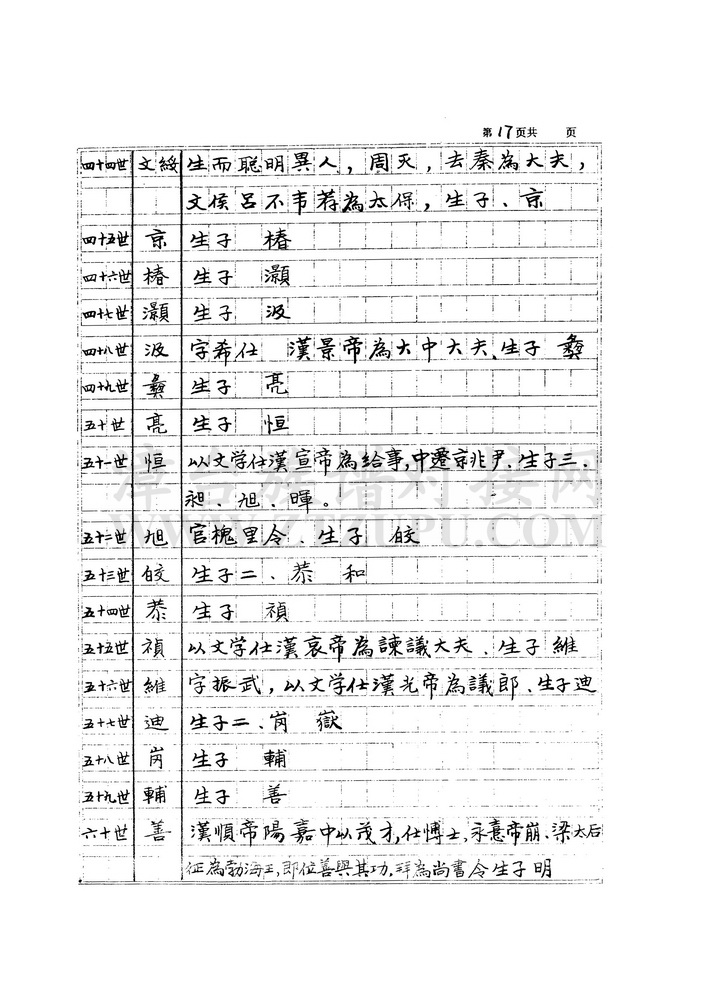 第17页共 页
四十四世 文綏 生而聪明異人，周灭，去秦為大夫，
文侯呂不韦荐為太保，生子、京
四十五世 京 生子 椿
四十六世 椿 生子 灝
四十七世 灝 生子 汲
四十八世 汲 字希仕 漢景帝為大中大夫、生子 彝
四十九世 彝 生子 亮
五十世 亮 生子 恒
五十一世 恒 以文学仕漢宣帝為给事，中遷京兆尹、生子三、
昶、旭、暉。
五十二世 旭 官槐里令、生子 皎
五十三世 皎 生子二、恭 和
五十四世 恭 生子 禎
五十五世 禎 以文学仕漢哀帝為諫議大夫、生子 維
五十六世 維 字振武，以文学仕漢光帝為議郎、生子迪
五十七世 迪 生子二、岗 嶽
五十八世 岗 生子 輔
五十九世 輔 生子 善
六十世 善 漢順帝陽嘉中以茂才，仕博士，永憙帝崩、梁太后
征為勃海王，即位善與其功，拜為尚書令生子明
WWW.ZTZUPU.COM